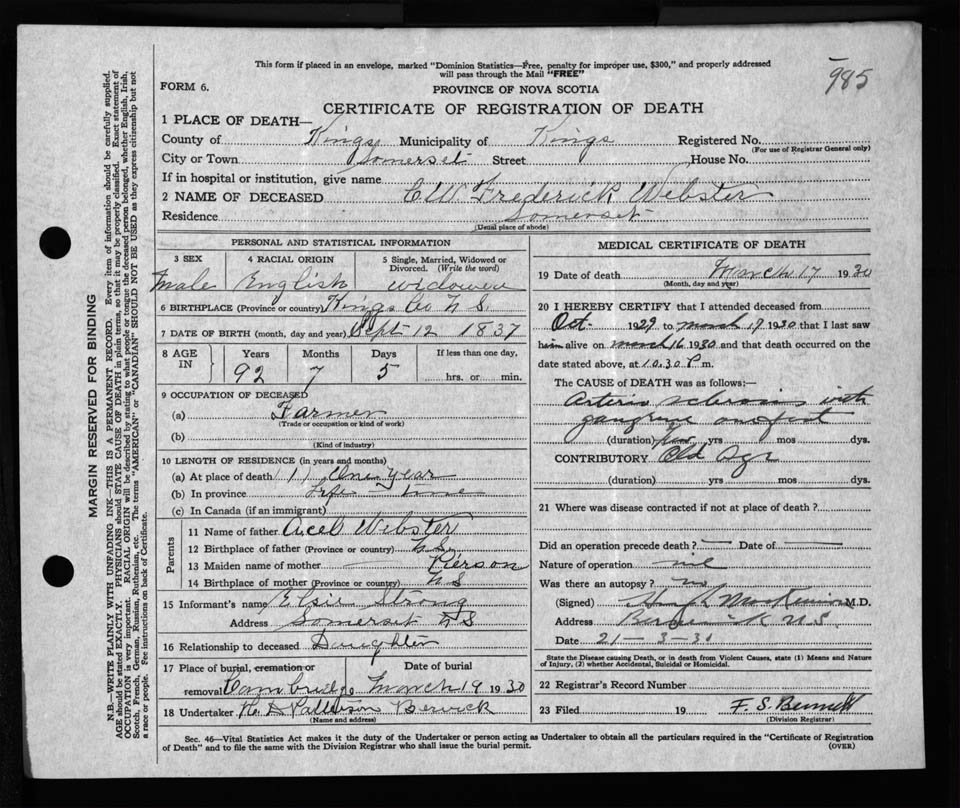 985
This form if placed in an envelope, marked "Dominion Statistics—Free, penalty for improper use, $300," and properly addressed
will pass through the Mail "FREE"
FORM 6.
PROVINCE OF NOVA SCOTIA
CERTIFICATE OF REGISTRATION OF DEATH
1 PLACE OF DEATH—
County of Kings Municipality of Kings Registered No.
(For use of Registrar General only)
City or Town Somerset Street House No.
If in hospital or institution, give name
2 NAME OF DECEASED C.W. Frederick Webster
Residence Somerset
(Usual place of abode)
PERSONAL AND STATISTICAL INFORMATION
3 SEX 4 RACIAL ORIGIN 5 Single, Married, Widowed or Divorced. (Write the word)
Male English widower
6 BIRTHPLACE (Province or country) Kings Co N S
7 DATE OF BIRTH (month, day and year) Sept 12 1837
8 AGE IN Years Months Days If less than one day,
92 7 5 hrs. or min.
9 OCCUPATION OF DECEASED
(a) Farmer
(Trade or occupation or kind of work)
(b)
(Kind of industry)
10 LENGTH OF RESIDENCE (in years and months)
(a) At place of death One year
(b) In province Life time
(c) In Canada (if an immigrant)
Parents
11 Name of father Webster
12 Birthplace of father (Province or country) N.S.
13 Maiden name of mother Pierson
14 Birthplace of mother (Province or country) N S
15 Informant's name Elsie Strong
Address Somerset N S
16 Relationship to deceased Daughter
17 Place of burial, cremation or Date of burial
removal Cambridge March 19 1930
18 Undertaker Patterson Berwick
(Name and address)
MEDICAL CERTIFICATE OF DEATH
19 Date of death March 17 1930
(Month, day and year)
20 I HEREBY CERTIFY that I attended deceased from
Oct- 1929 to March 17 1930 that I last saw
him alive on March 16 1930 and that death occurred on the
date stated above, at 10.30 P.m.
The CAUSE of DEATH was as follows:
Arterio sclerosis with
gangrene one foot
(duration) few yrs mos dys.
CONTRIBUTORY Old Age
(duration) yrs mos dys.
21 Where was disease contracted if not at place of death?
Did an operation precede death? — Date of —
Nature of operation nil
Was there an autopsy? no
(Signed) M.D.
Address Berwick N.S.
Date 21-3-30
State the Disease causing Death, or in death from Violent Causes, state (1) Means and Nature
of Injury, (2) whether Accidental, Suicidal or Homicidal.
22 Registrar's Record Number
23 Filed 19 F. S. Bennett
(Division Registrar)
Sec. 46—Vital Statistics Act makes it the duty of the Undertaker or person acting as Undertaker to obtain all the particulars required in the "Certificate of Registration
of Death" and to file the same with the Division Registrar who shall issue the burial permit. (OVER)
MARGIN RESERVED FOR BINDING
N.B.—WRITE PLAINLY WITH UNFADING INK—THIS IS A PERMANENT RECORD. Every item of information should be carefully supplied.
AGE should be stated EXACTLY. PHYSICIANS should STATE CAUSE OF DEATH in plain terms, so that it may be properly classified. Exact statement of
OCCUPATION is very important. RACIAL ORIGIN will be described by stating to what people or tongue the deceased person belonged, whether English, Irish,
Scotch, French, German, Russian, Ruthenian, etc. The terms "AMERICAN" or "CANADIAN" SHOULD NOT BE USED as they express citizenship but not
a race or people. Fee instructions on back of Certificate.